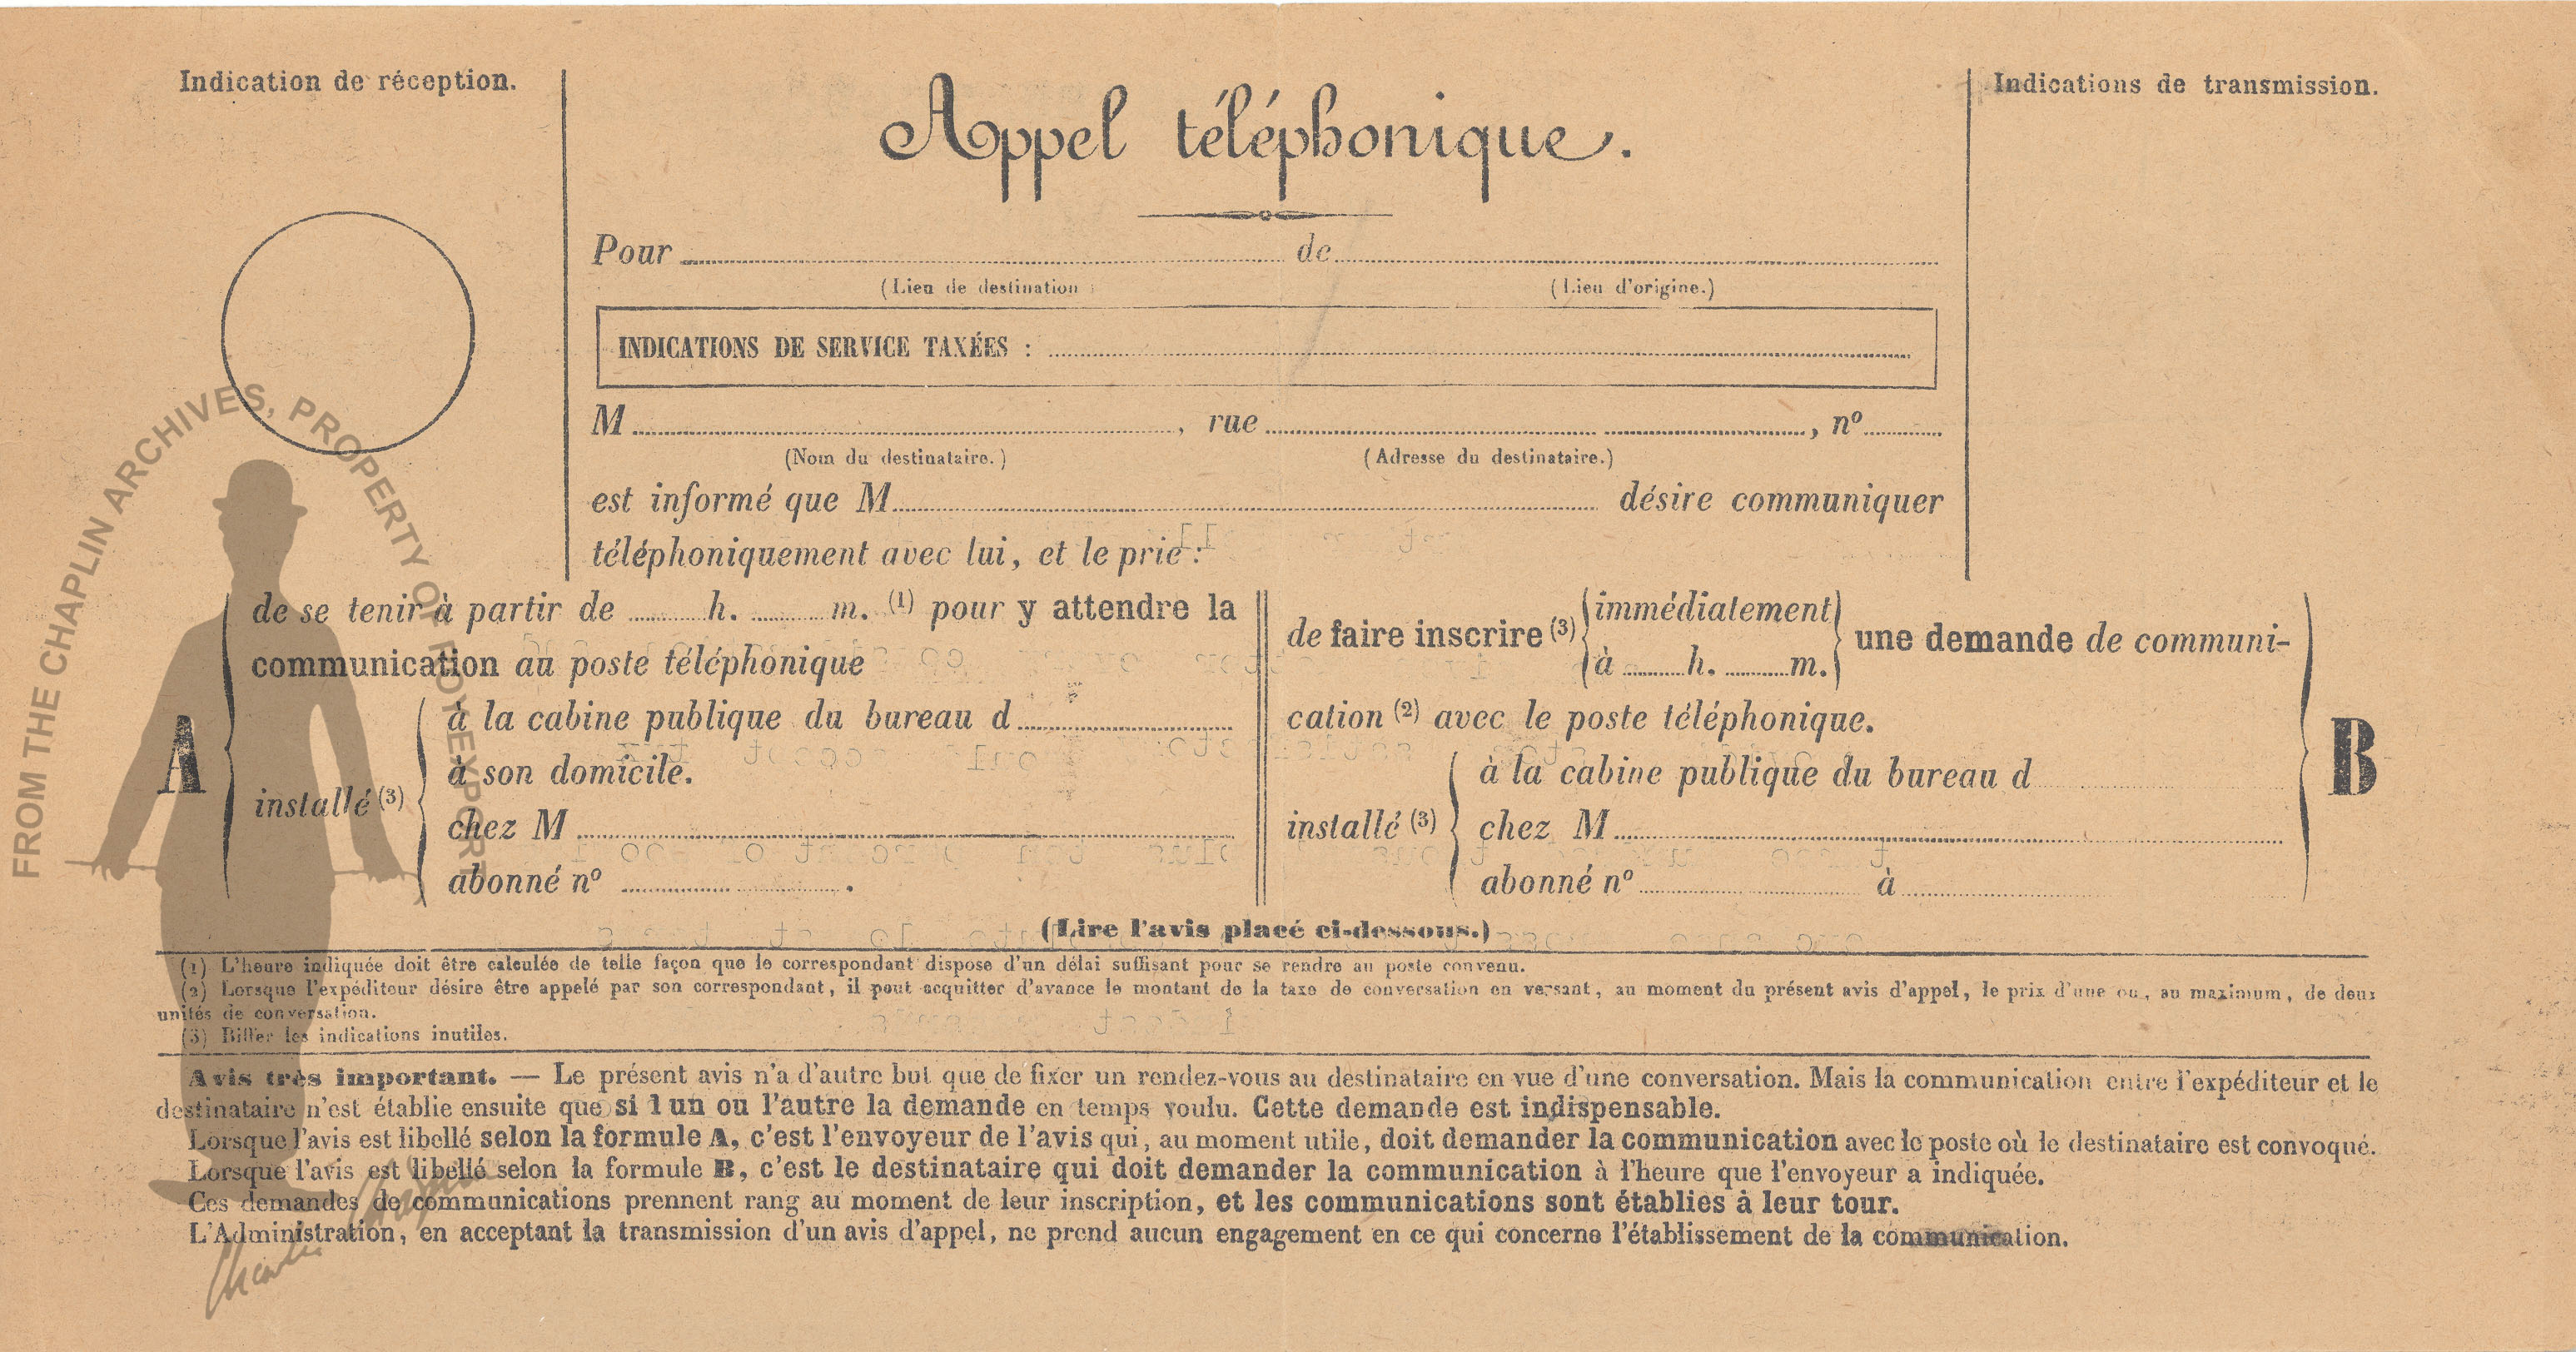 Indication de réception.
Appel téléphonique.
Indications de transmission.
Pour de
(Lieu de destination (Lieu d'origine.)
INDICATIONS DE SERVICE TAXÉES :
M , rue , nº
(Nom du destinataire.) (Adresse du destinataire.)
est informé que M désire communiquer
téléphoniquement avec lui, et le prie :
A
de se tenir à partir de h. m. (1) pour y attendre la
communication au poste téléphonique
installé (3)
à la cabine publique du bureau d
à son domicile.
chez M
abonné nº .
de faire inscrire (3) immédiatement
à h. m.
une demande de communi-
cation (2) avec le poste téléphonique.
installé (3)
à la cabine publique du bureau d
chez M
abonné nº à
B
(Lire l'avis placé ci-dessous.)
(1) L'heure indiquée doit être calculée de telle façon que le correspondant dispose d'un délai suffisant pour se rendre au poste convenu.
(2) Lorsque l'expéditeur désire être appelé par son correspondant, il peut acquitter d'avance le montant de la taxe de conversation en versant, au moment du présent avis d'appel, le prix d'une ou, au maximum, de deux
unités de conversation.
(3) Biffer les indications inutiles.
Avis très important. — Le présent avis n'a d'autre but que de fixer un rendez-vous au destinataire en vue d'une conversation. Mais la communication entre l'expéditeur et le
destinataire n'est établie ensuite que si l un ou l'autre la demande en temps voulu. Cette demande est indispensable.
Lorsque l'avis est libellé selon la formule A, c'est l'envoyeur de l'avis qui, au moment utile, doit demander la communication avec le poste où le destinataire est convoqué.
Lorsque l'avis est libellé selon la formule B, c'est le destinataire qui doit demander la communication à l'heure que l'envoyeur a indiquée.
Ces demandes de communications prennent rang au moment de leur inscription, et les communications sont établies à leur tour.
L'Administration, en acceptant la transmission d'un avis d'appel, ne prend aucun engagement en ce qui concerne l'établissement de la communication.
FROM THE CHAPLIN ARCHIVES, PROPERTY OF ROY EXPORT